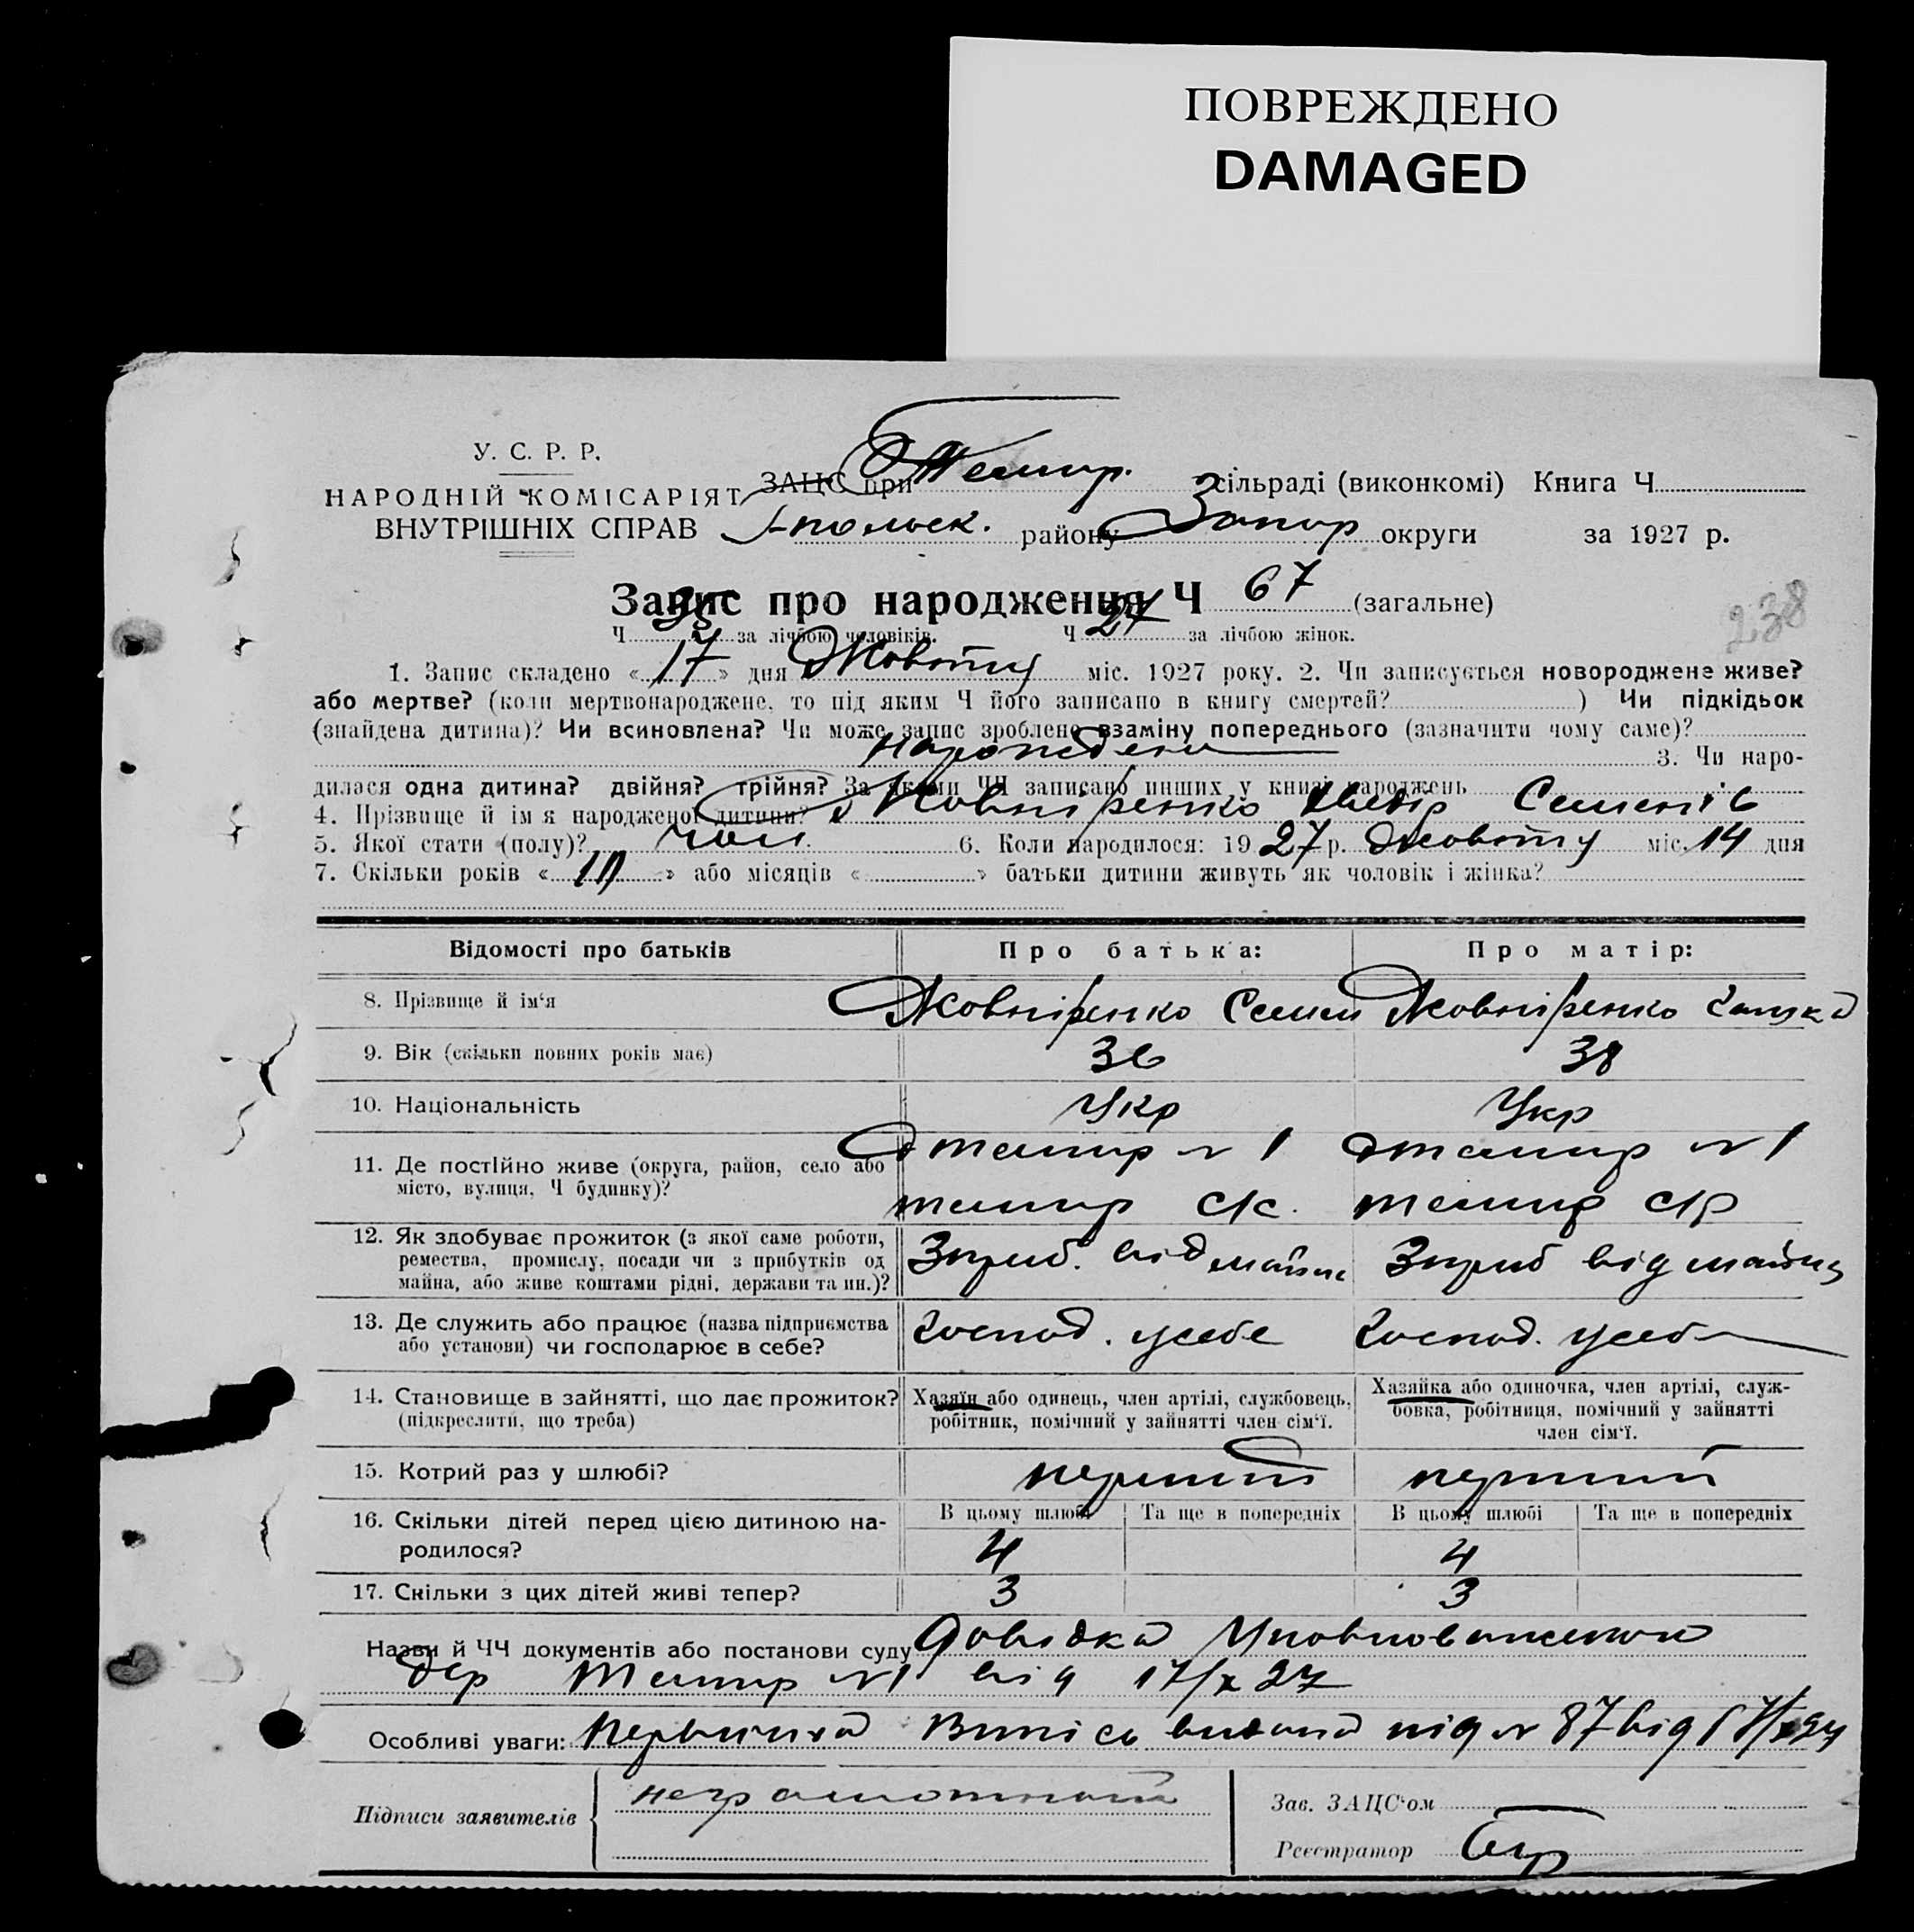 ПОВРЕЖДЕНО
DAMAGED
У. С. Р. Р.
НАРОДНІЙ КОМІСАРІЯТ
ВНУТРІШНІХ СПРАВ
ЗАЦС при Темир. сільраді (виконкомі) Книга Ч
польск. району Запор округи за 1927 р.
Запис про народження Ч 67 (загальне)
Ч за лічбою чоловіків. Ч за лічбою жінок.
1. Запис складено «17» дня Жовтну міс. 1927 року. 2. Чи записується новороджене живе?
або мертве? (коли мертвонароджене, то під яким Ч його записано в книгу смертей? ) Чи підкідьок
(знайдена дитина)? Чи всиновлена? Чи може запис зроблено взаміну попереднього (зазначити чому саме)?
народжени 3. Чи наро-
дилася одна дитина? двійня? трійня? За якими ЧЧ записано инших у книзі народжень
4. Прізвище й ім'я народженої дитини? Жовніренко Хведір Семенів
5. Якої стати (полу)? чол. 6. Коли народилося: 1927 р. Жовтну міс. 14 дня
7. Скільки років «10» або місяців « » батьки дитини живуть як чоловік і жінка?
Відомості про батьків Про батька: Про матір:
8. Прізвище й ім'я Жовніренко Семен Жовніренко
9. Вік (скільки повних років має) 36 38
10. Національність Укр Укр
11. Де постійно живе (округа, район, село або темир №1 темир №1
місто, вулиця, Ч будинку)? темир с/р темир с/р
12. Як здобуває прожиток (з якої саме роботи,
ремества, промислу, посади чи з прибутків од Зприб. від майна Зприб від майна
майна, або живе коштами рідні, держави та ин.)?
13. Де служить або працює (назва підприємства Господ. усебе Господ. усебе
або установи) чи господарює в себе?
14. Становище в зайнятті, що дає прожиток? Хазяїн або одинець, член артілі, службовець, Хазяйка або одиночка, член артілі, служ-
(підкреслити, що треба) робітник, помічний у зайнятті член сім'ї. бовка, робітниця, помічний у зайнятті
член сім'ї.
15. Котрий раз у шлюбі? перший перший
16. Скільки дітей перед цією дитиною на- В цьому шлюбі Та ще в попередніх В цьому шлюбі Та ще в попередніх
родилося? 4 4
17. Скільки з цих дітей живі тепер? 3 3
Назви й ЧЧ документів або постанови суду Довідка Уповноваженого
дер Темир №1 від 17/X 27
Особливі уваги: Первична Випісь видана під № 87 від 17/X 27
Підписи заявителів неграмотний Зав. ЗАЦС'ом
Реєстратор
238